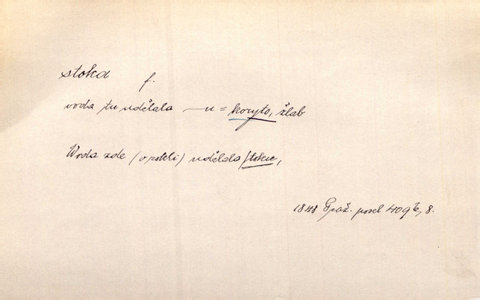 stoka f.
voda tu udělala —u = koryto, žlab
Voda zde (v poli) udělala stoku,
1848 Praž. posel 409b, 8.